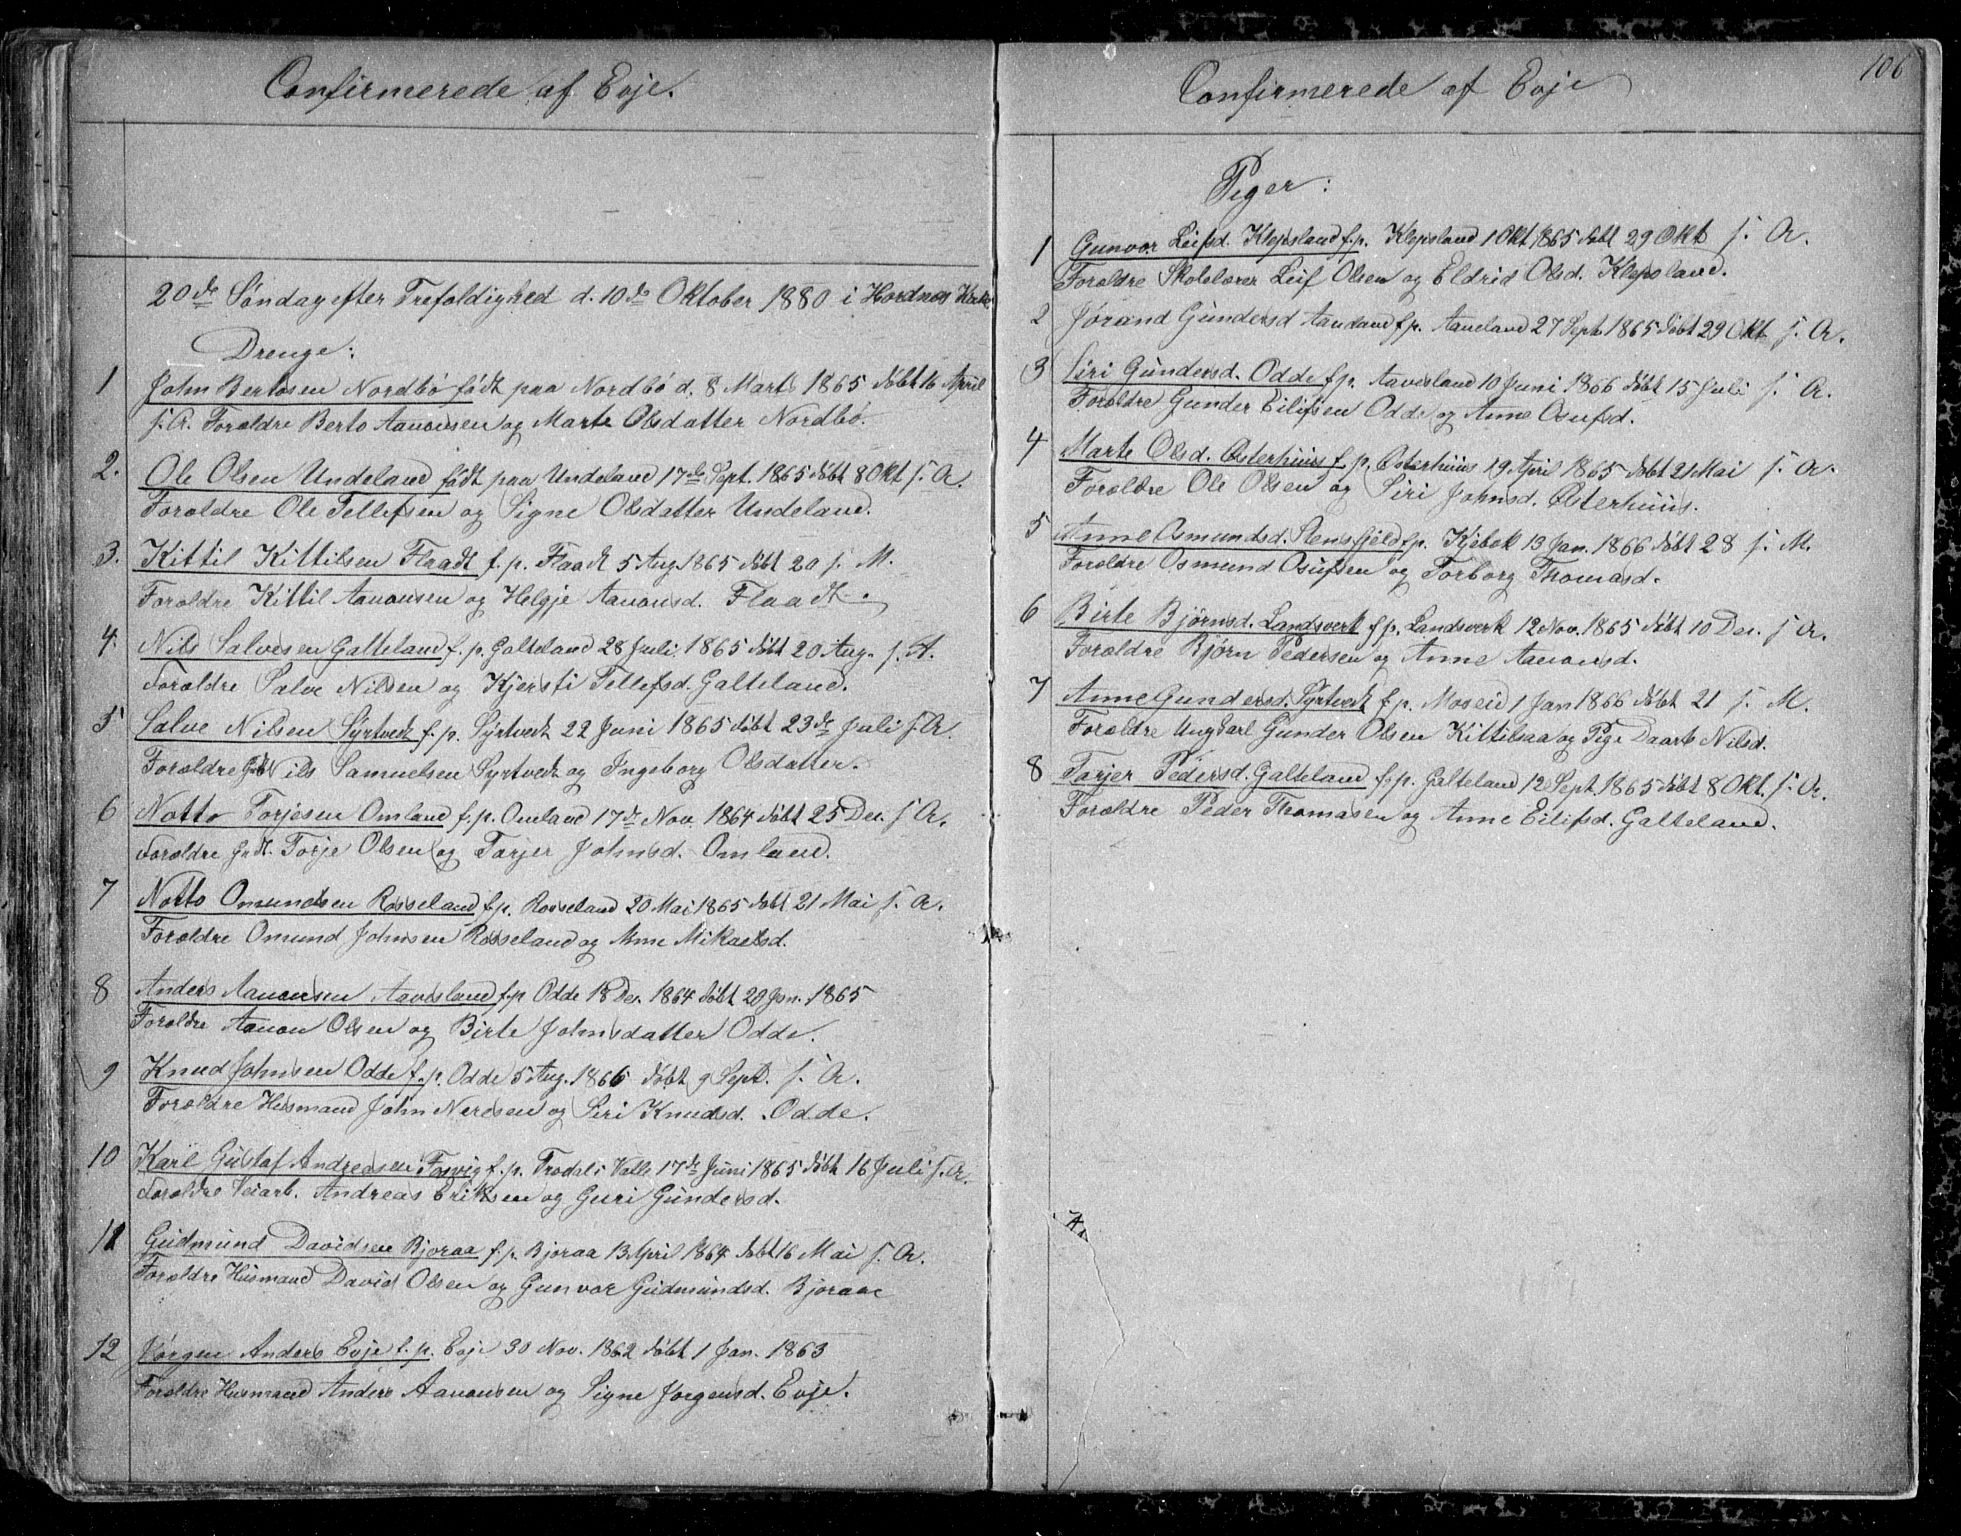 Confirmerede af Evje.
20de Søndag efter Trefoldighed d. 10de Oktober 1880 i Hordnes Kirke
Drenge:
1 John Bertosen Nordbø født paa Nordbø d. 8 Marts 1865 døbt 16 April
s. A. Forældre Berto Aanonsen og Marte Olsdatter Nordbø.
2. Ole Olsen Undeland født paa Undeland 17de Sept. 1865 døbt 8 Okt s. A.
Forældre Ole Tellefsen og Signe Olsdatter Undeland.
3. Kittil Kittilsen Flaadt f. p. Flaadt 5 Aug. 1865 døbt 20 s. M.
Forældre Kittil Aanonsen og Helgje Aanonsd. Flaadt.
4. Nils Salvesen Galteland f. p. Galteland 28 Juli 1865 døbt 20 Aug. s. A.
Forældre Salve Nilsen og Kjersti Tellefsd. Galteland.
5 Salve Nilsen Syrtvedt f. p. Syrtvedt 22 Juni 1865 døbt 23de Juli s. A.
Forældre Gdr. Nils Samuelsen Syrtvedt og Ingeborg Olsdatter.
6 Notto Torjesen Omland f. p. Omland 17de Nov. 1864 døbt 25 Dec. s. A.
Forældre Torje Olsen og Torjer Johnsd. Omland.
7 Notto Omundsen Rosseland f. p. Rosseland 20 Mai 1865 døbt 21 Mai s. A.
Forældre Omund Johnsen Rosseland og Anne Mikaelsd.
8 Anders Aanonsen Aavesland f. p. Odde 18 Dec. 1864 døbt 29 Jan. 1865
Forældre Aanon Olsen og Birte Johnsdatter Odde.
9 Knud Johnsen Odde f. p. Odde 5 Aug. 1866 døbt 9 Sept. s. A.
Forældre Husmand John Nerosen og Siri Knudsd. Odde.
10 Karl Gustaf Andreasen Fosvig f. p. Trodali Valle 17de Juni 1865 døbt 16 Juli s. A.
Forældre Veiarb. Andreas Eriksen og Guri Gundersd.
11 Gudmund Davidsen Bjoraa f. p. Bjoraa 13 April 1864 døbt 16 Mai s. A.
Forældre Husmand David Olsen og Gunvor Gudmundsd. Bjoraa
12 Jørgen Anders Evje f. p. Evje 30 Nov. 1862 døbt 1 Jan. 1863
Forældre Husmand Anders Aanonsen og Signe Jørgensd. Evje.
106
Confirmerede af Evje
Piger:
1 Gunvor Leifsd. Klepsland f. p. Klepsland 1 Okt 1865 døbt 29 Okt s. A.
Forældre Skolelærer Leif Olsen og Eldrid Olsd. Klepsland.
2 Jørand Gundersd Aaneland f. p. Aaneland 27 Sept. 1865 døbt 29 Okt. s. A.
3 Siri Gundersd. Odde f. p. Aavesland 10 Juni 1866 døbt 15 Juli s. A.
Forældre Gunder Eilifsen Odde og Anne Osufsd.
4 Marte Olsd. Østerhuus f. p. Østerhuus 19 April 1865 døbt 21 Mai s. A.
Forældre Ole Olsen og Siri Johnsd. Østerhuus.
5 Anne Osmundsd. Stensfjeld f. p. Kjebok 13 Jan. 1866 døbt 28 s. M.
Forældre Osmund Osufsen og Torborg Thomasd.
6 Birte Bjørnsd. Landsverk f. p. Landsverk 12 Nov. 1865 døbt 10 Dec. s. A.
Forældre Bjørn Pedersen og Anne Aanonsd.
7 Anne Gundersd. Syrtvedt f. p. Moseid 1 Jan 1866 døbt 21 s. M.
Forældre Ungkarl Gunder Olsen Kittilsaa og Pige Daarte Nilsd.
8 Torjer Pedersd. Galteland f. p. Galteland 12 Sept. 1865 døbt 8 Okt. s. A.
Forældre Peder Thomasen og Anne Eilifsd. Galteland.